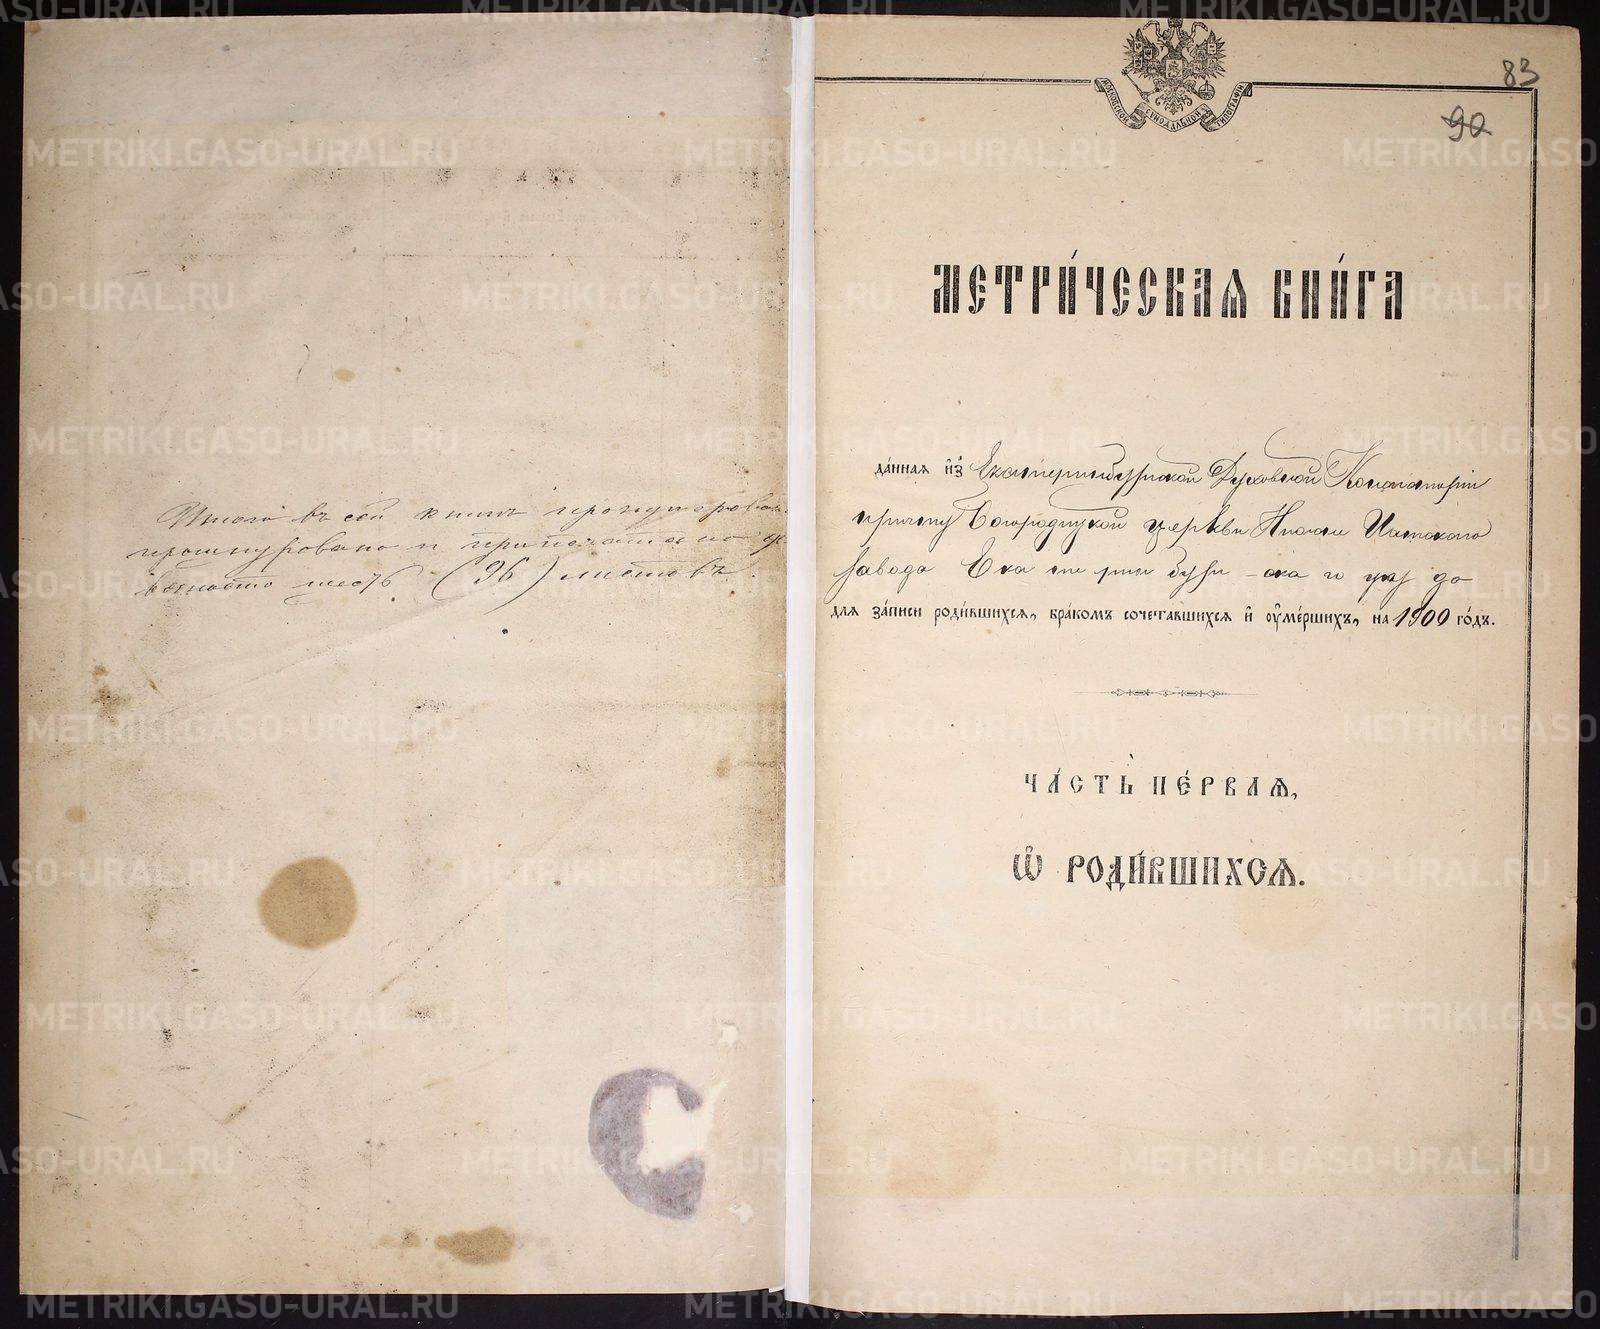 Итого въ сей книгѣ пронумеровано
прошнуровано и припечатано де
вяносто шесть (96) листовъ.
83
90
МОСКОВСКОЙ СѴНОДАЛЬНОЙ ТИПОГРАФІИ
МЕТРИ́ЧЕСКАѦ КНИ́ГА
да́ннаѧ и҆з̾ Екатеринбургской Духовной Консисторіи
причту Богородицкой церкви Нижне Исетскаго
завода Екатеринбург-скаго уѣзда
для за́писи роди́вшихсѧ, бра́комъ сочета́вшихсѧ и҆ ᲂу҆ме́ршихъ, на 1900 го́дъ.
ЧА́СТЬ ПЕ́РВАѦ,
Ѽ РОДИ́ВШИХСѦ.
METRIKI.GASO-URAL.RU